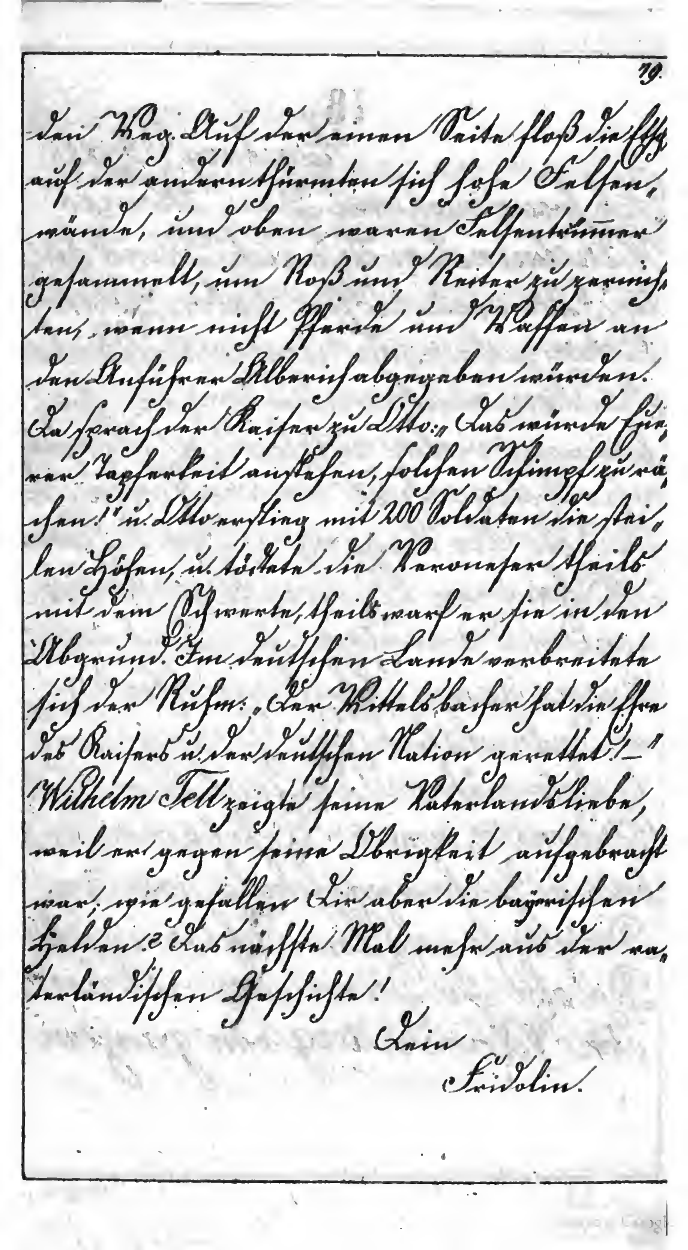 79.
den Weg. Auf der einen Seite floß die Etsch
auf der andern thürmten sich hohe Felsen„
wände, und oben waren Felsentrümmer
gesammelt, um Roß und Reiter zu zernich„
ten, wenn nicht Pferde und Waffen an
den Anführer Alberich abgegeben würden.
Da sprach der Kaiser zu Otto: „Das würde Eue„
rer Tapferkeit anstehen, solchen Schimpf zu rä„
chen!" u. Otto erstieg mit 200 Soldaten die stei„
len Höhen, u. tödtete die Veroneser theils
mit dem Schwerte, theils warf er sie in den
Abgrund. Im deutschen Lande verbreitete
sich der Ruhm: „Der Wittelsbacher hat die Ehre
des Kaisers u. der deutschen Nation gerettet!–"
Wilhelm Tell zeigte seine Vaterlandsliebe,
weil er gegen seine Obrigkeit aufgebracht
war, wie gefallen Dir aber die bayerischen
Helden? Das nächste Mal mehr aus der va„
terländischen Geschichte!
Dein
Fridolin.